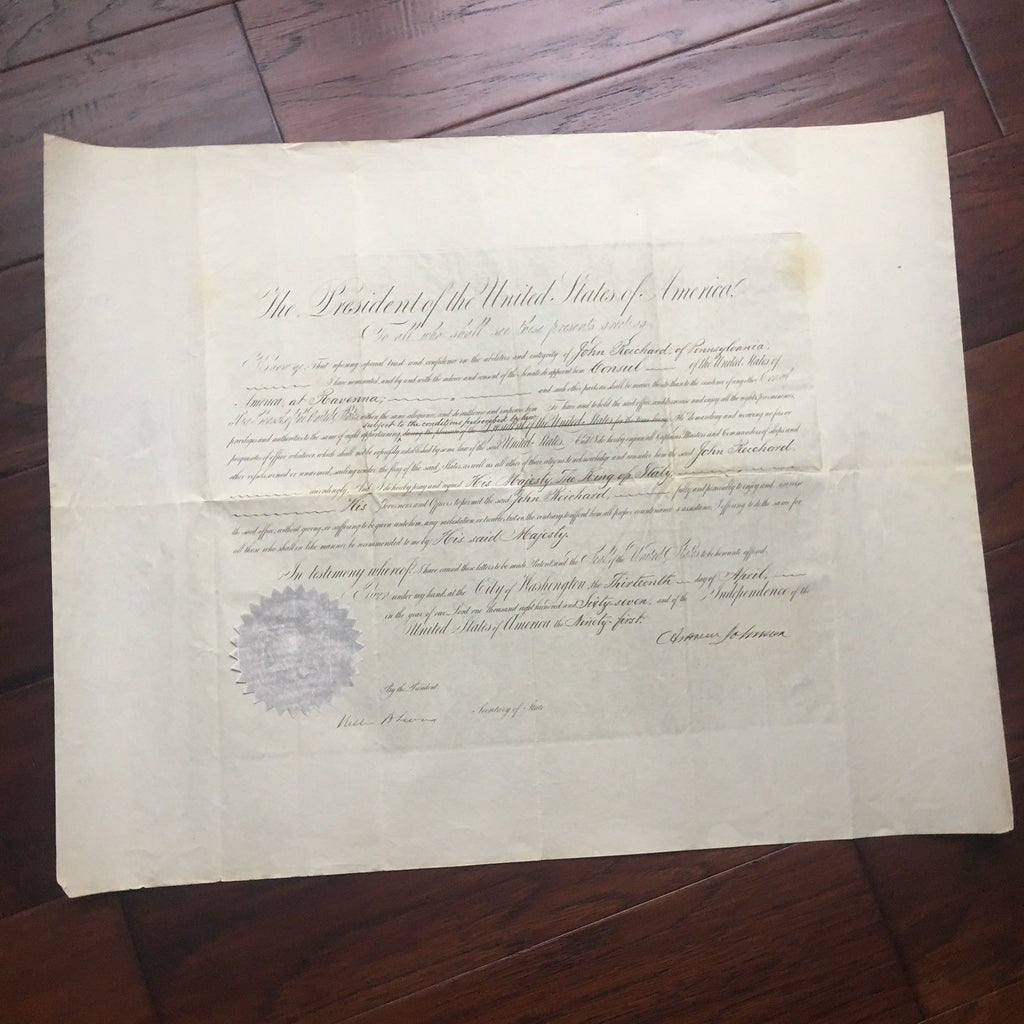 The President of the United States of America,
To all who shall see these presents, greeting
Know ye, That reposing special trust and confidence in the abilities and integrity of John Reichard, of Pennsylvania,
I have nominated, and by and with the advice and consent of the Senate do appoint him Consul of the United States of
America, at Ravenna, and such other parts as shall be nearer thereto than to the residence of any other Consul
within the same allegiance, and do authorize and empower him to have and to hold the said office, and to exercise and enjoy all the rights, preeminences,
subject to the conditions prescribed by law
privileges and authorities to the same of right appertaining, during the pleasure of the President of the United States for the time being; He demanding and receiving no fees or
perquisites of office whatever, which shall not be expressly established by some law of the said United States. And I do hereby enjoin all Captains, Masters and Commanders of ships and
other vessels, armed or unarmed, sailing under the flag of the said States, as well as all other of their citizens, to acknowledge and consider him the said John Reichard
accordingly. And I do hereby pray and request His Majesty The King of Italy,
His Governors and Officers to permit the said John Reichard, fully and peaceably to enjoy and exercise
the said office, without giving, or suffering to be given unto him, any molestation or trouble, but on the contrary to afford him all proper countenance & assistance; I offering to do the same for
all those who shall in like manner be recommended to me by His said Majesty.
In testimony whereof, I have caused these letters to be made Patent, and the Seal of the United States to be hereunto affixed,
Given under my hand, at the City of Washington, the Thirteenth day of April,
in the year of our Lord one thousand eight hundred and Sixty-seven, and of the Independence of the
United States of America the Ninety-first.
Andrew Johnson
By the President.
Secretary of State